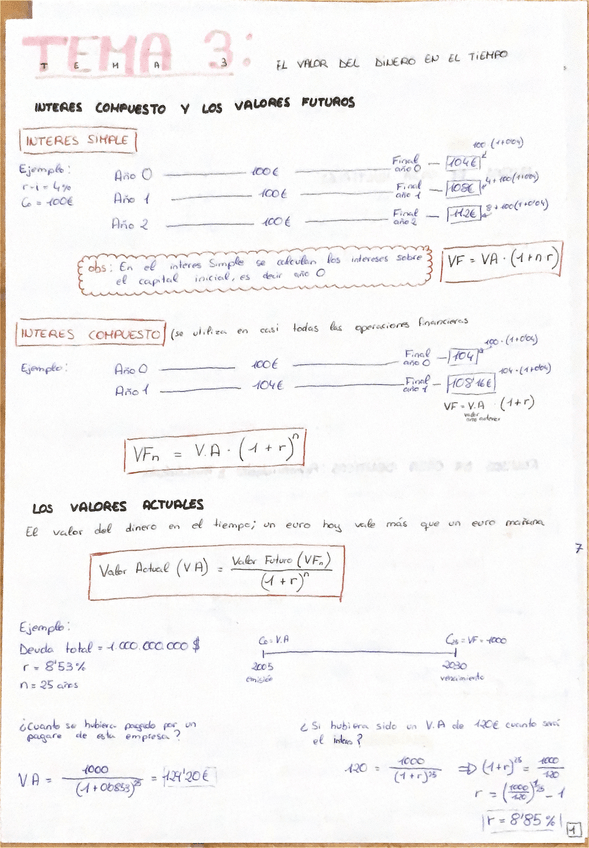 TEMA 3:
T E M A 3 EL VALOR DEL DINERO EN EL TIEMPO
INTERES COMPUESTO Y LOS VALORES FUTUROS
INTERES SIMPLE
Ejemplo:
r=i=4%
C₀=100€
100·(1+0'04)
Año 0 100€ Final año 0 104€
4+100(1+0'04)
Año 1 100€ Final año 1 108€
8+100(1+0'04)
Año 2 100€ Final año 2 112€
obs: En el interes Simple se calculan los intereses sobre
el capital inicial, es decir año 0
VF = VA · (1+n r)
INTERES COMPUESTO (se utiliza en casi todas las operaciones financieras
Ejemplo:
100·(1+0'04)
Año 0 100€ Final año 0 104
104·(1+0'04)
Año 1 104€ Final año 1 108'16€
VF = V.A · (1+r)
VFn = V.A · (1+r)ⁿ
LOS VALORES ACTUALES
El valor del dinero en el tiempo; un euro hoy vale más que un euro mañana
7
Valor Actual (VA) = Valor Futuro (VFn) / (1+r)ⁿ
Ejemplo:
Deuda total = 1.000.000.000 $
r = 8'53%
n = 25 años
C₀ = V.A C₂₅ = VF = 1000
2005 2030
emisión vencimiento
¿Cuanto se hubiera pagado por un
pagare de esta empresa?
VA = 1000 / (1+0'0853)²⁵ = 129'20€
¿Si hubiera sido un V.A de 120€ cuanto será
el interes?
120 = 1000 / (1+r)²⁵ ⇒ (1+r)²⁵ = 1000/120
r = (1000/120)^1/25 - 1
r = 8'85%
1